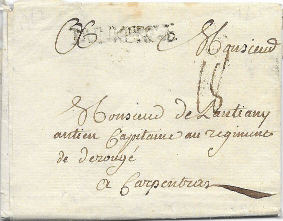 Monsieur
18
Monsieur de Lantiany
antien Capitaine au regiment
de derougé
a Carpentras